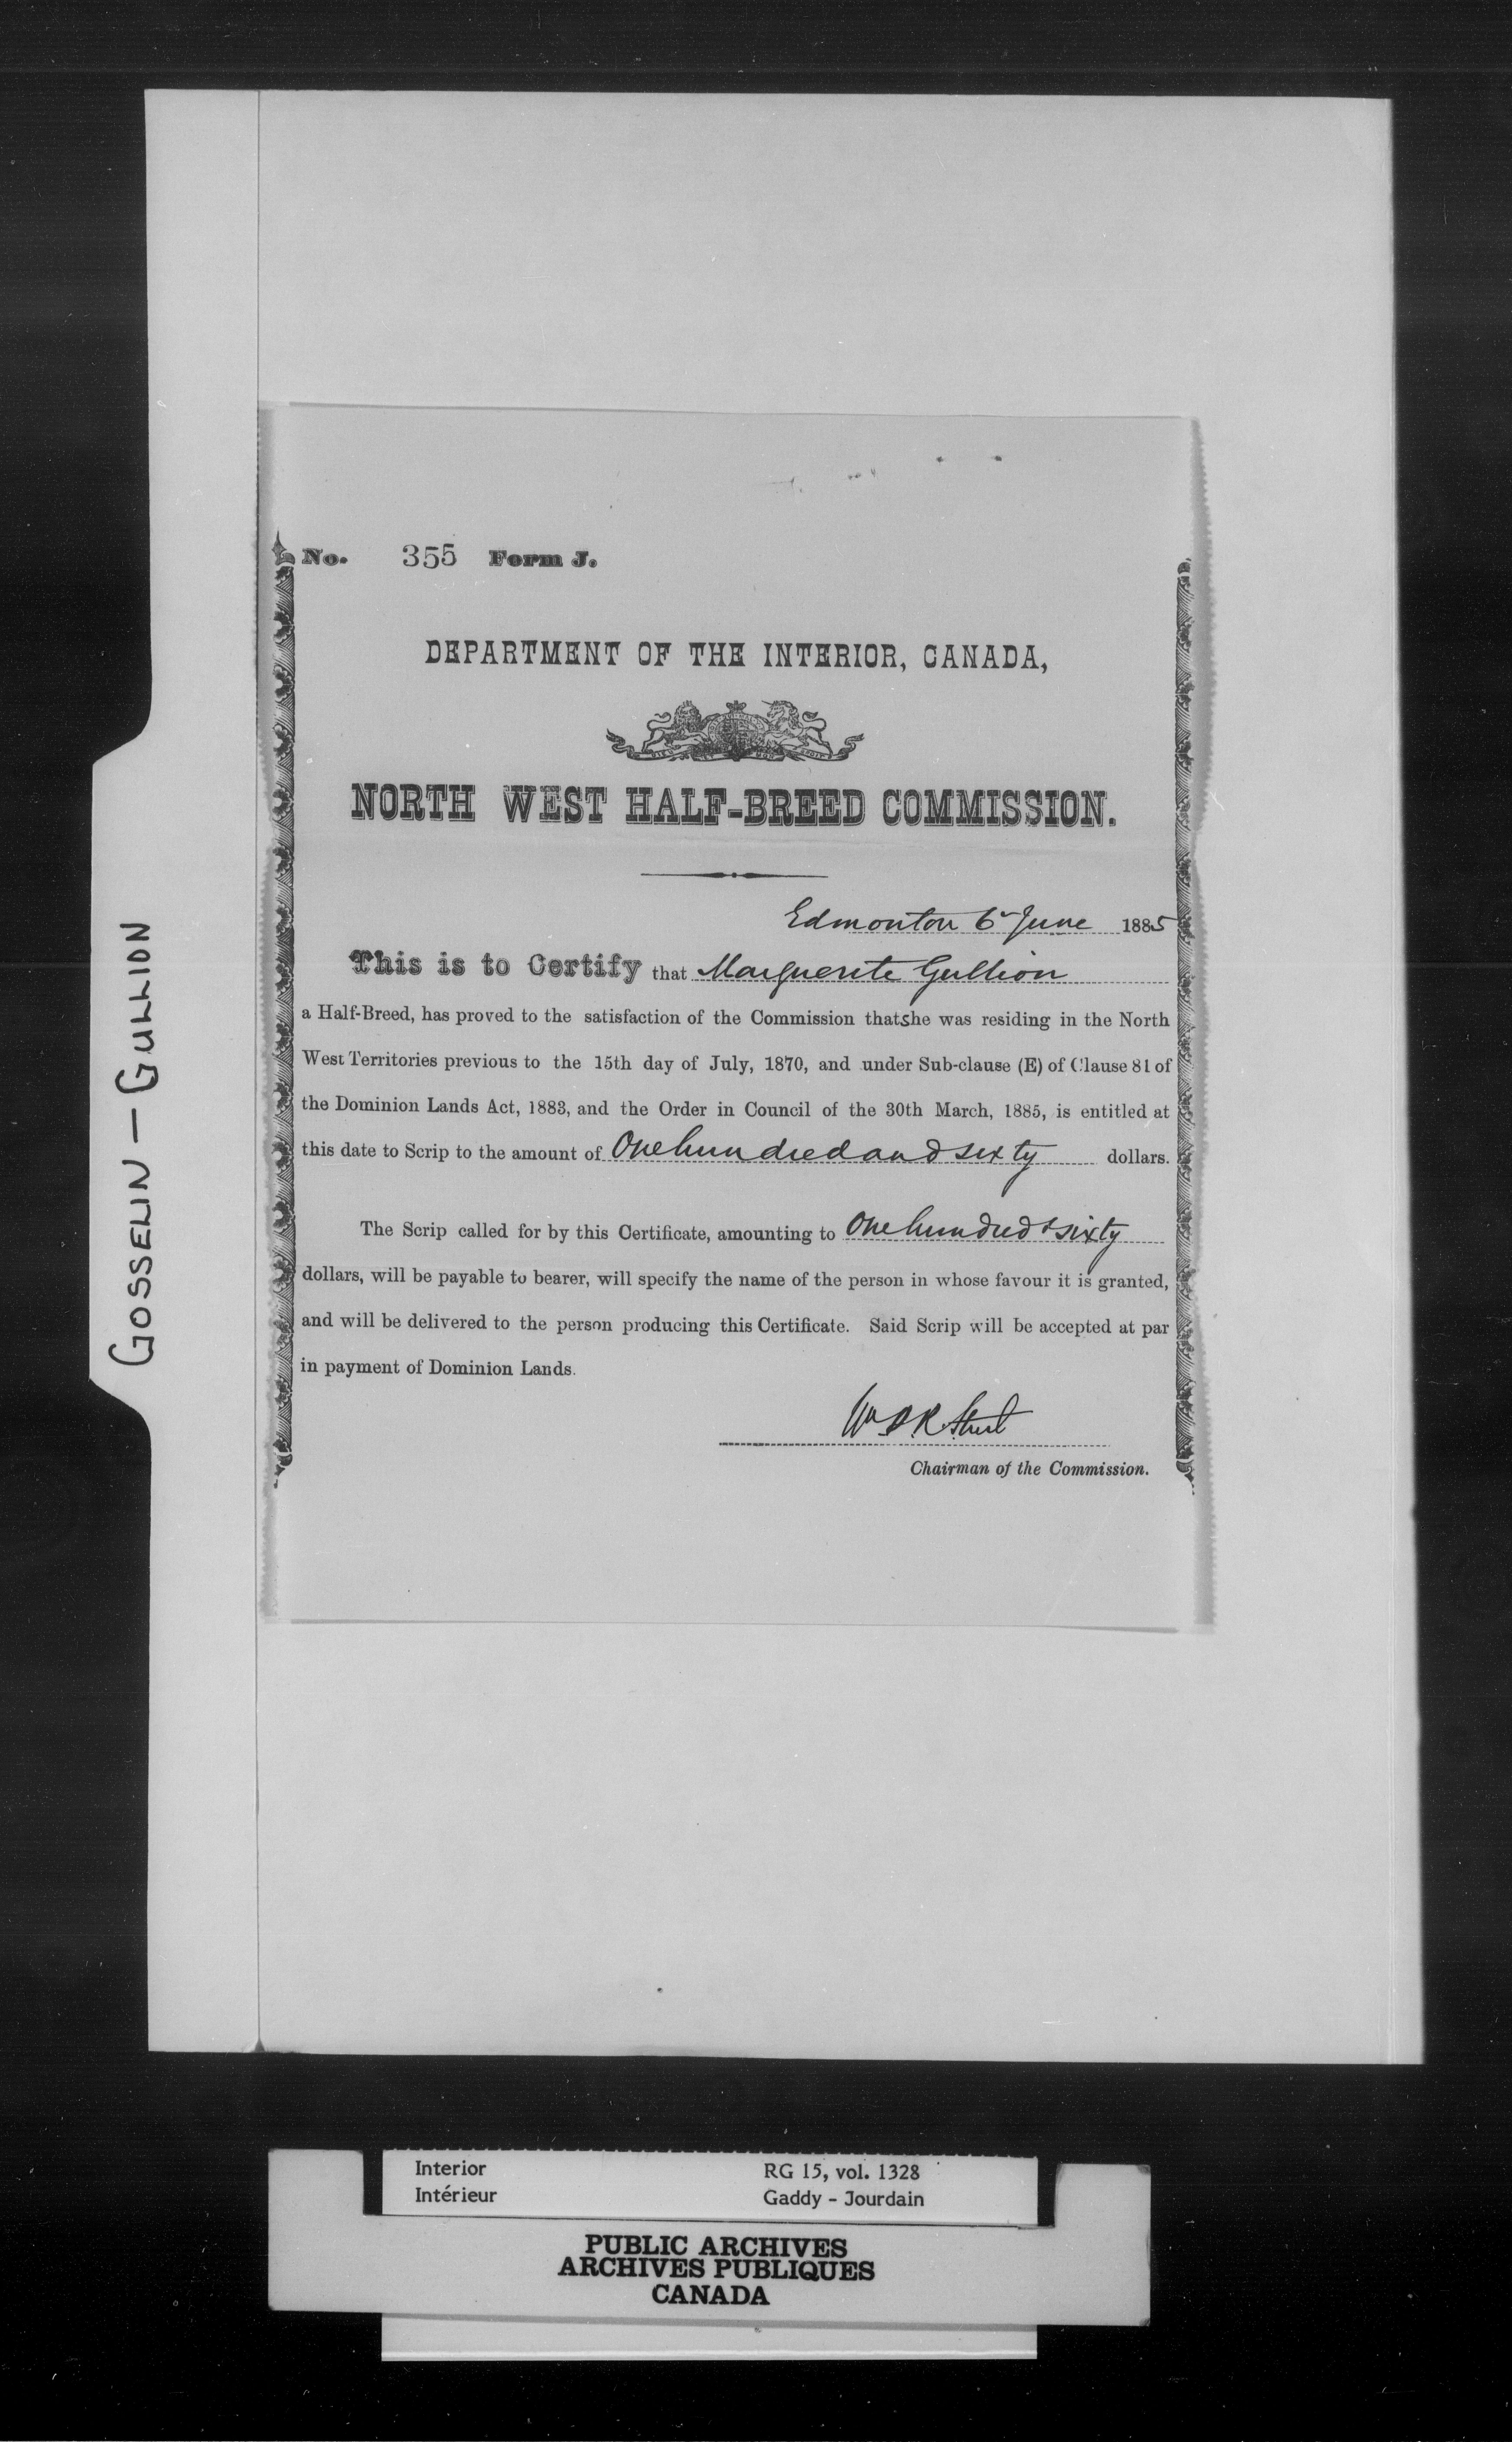 GOSSELIN - GULLION
No. 355 Form J.
DEPARTMENT OF THE INTERIOR, CANADA,
NORTH WEST HALF-BREED COMMISSION.
Edmonton 6 June 1885
This is to Certify that Marguerite Gullion
a Half-Breed, has proved to the satisfaction of the Commission that she was residing in the North
West Territories previous to the 15th day of July, 1870, and under Sub-clause (E) of Clause 81 of
the Dominion Lands Act, 1883, and the Order in Council of the 30th March, 1885, is entitled at
this date to Scrip to the amount of One hundred and sixty dollars.
The Scrip called for by this Certificate, amounting to One hundred & sixty
dollars, will be payable to bearer, will specify the name of the person in whose favour it is granted,
and will be delivered to the person producing this Certificate. Said Scrip will be accepted at par
in payment of Dominion Lands.
Wm P. R. Street
Chairman of the Commission.
Interior RG 15, vol. 1328
Intérieur Gaddy - Jourdain
PUBLIC ARCHIVES
ARCHIVES PUBLIQUES
CANADA